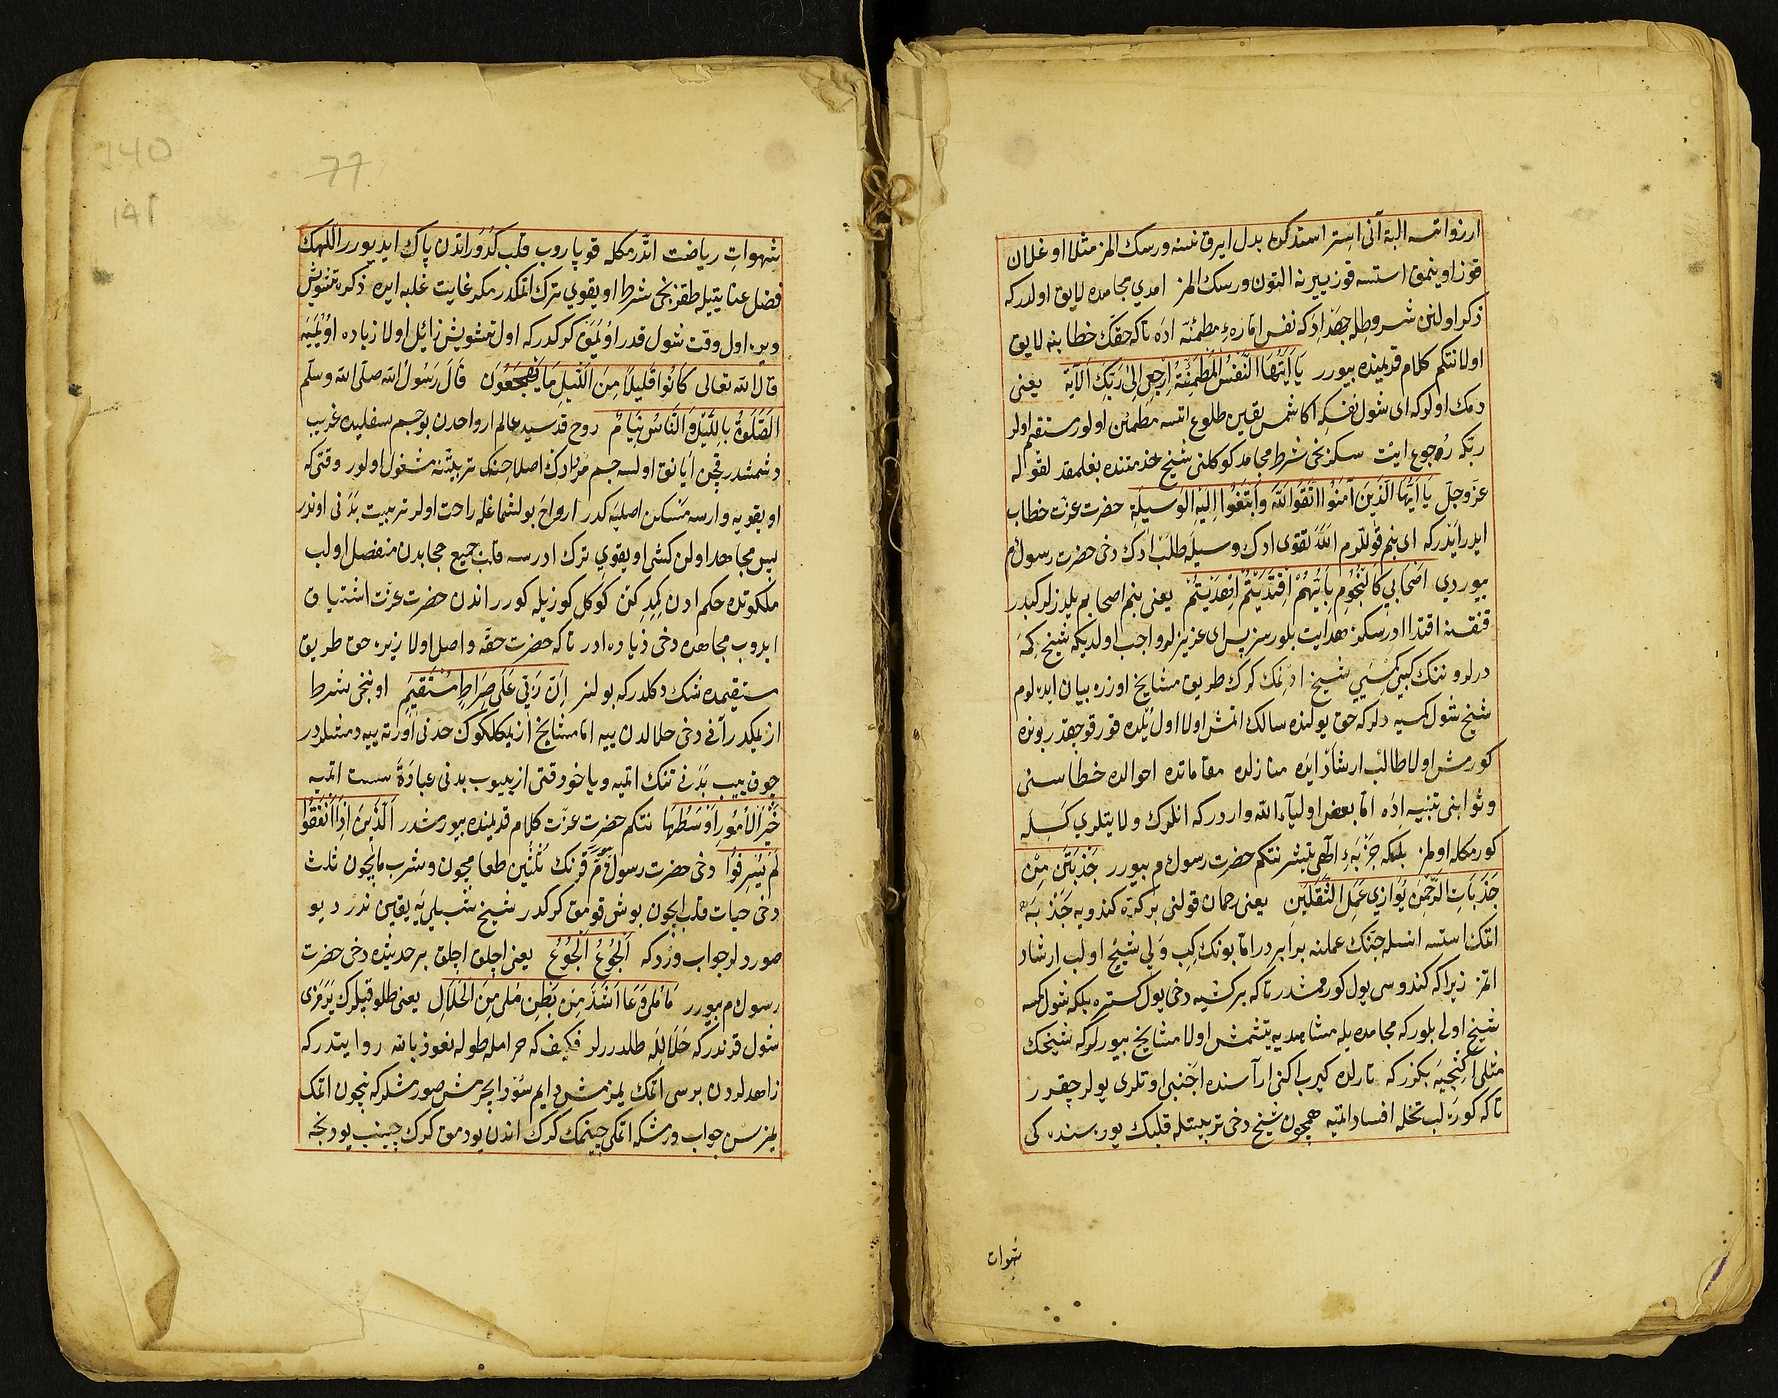 ارزو اتسه البته آنی استر استدکن بدل ایرق نسنه ورسک المز مثلا اوغلان
قوز اوینمق استسه قوز یرینه التون ورسک المز امدی مجاهده لایق اولدرکه
ذکر اولنن شروطله جهد اده که نفس اماره‌ء مطمئنه اده تا که حقک خطابنه لایق
اولا نتکم کلام قدیمنده بیورر یَا اَیَّتُهَا النَّفْسُ الْمُطْمَئِنَّةُ اِرْجِعِی اِلٰی رَبِّکِ الْآیَة یعنی
دمک اولورکه ای شول نفس که اکا شمس یقین طلوع اتسه مطمئن اولور مستقیم اولر
ربکه رجوع ایت سکزنجی شرط مجاهد کوکلنی شیخ خدمتنده بغلمقدر لقوله
عزّ وجلّ یَا اَیُّهَا الَّذِینَ آمَنُوا اتَّقُوا اللّٰهَ وَابْتَغُوا اِلَیْهِ الْوَسِیلَةَ حضرت عزت خطاب
ایدر ایدرکه ای بنم قوللرم اللّٰه تقوی ادک وسیله طلب ادک دخی حضرت رسول م
بیوردی اَصْحَابِی کَالنُّجُومِ بِاَیِّهِمُ اقْتَدَیْتُمْ اِهْتَدَیْتُمْ یعنی بنم اصحابم یلدزلر کبدر
قنقسنه اقتدا ادرسکز هدایت بلورسز پس ای عزیزلر واجب اولدیکه شیخ کمه
درلر و ننک کبی کسیی شیخ ادنمک کرک طریق مشایخ اوزره بیان ایده لوم
شیخ شول کسیه درلرکه حق یولنده سالک اتمش اولا اول یلده قورقو جقدر یونده
کورمش اولا طالب ارشاد ایده منازلده مقاماتده احوالده خطاسنی
و ثوابنی تنبیه اده اما بعض اولیاء الله واردرکه انلرک ولایتلری کسبله
کورمکله اولمز بلکه جذبه‌ء الهی یتشر نتکم حضرت رسول م بیورر جَذْبَةٌ مِنْ
جَذَبَاتِ الرَّحْمٰنِ یُوَازِی عَمَلَ الثَّقَلَیْنِ یعنی رحمان قولنی بر کره کندویه جذبه
اتمک استسه انسله جنک عملنه برابردر اما بونک کب ولی شیخ اولب ارشاد
اتمز زیراکه کندوسی یول کورمشدر تا که بر کشیه دخی یول کستره بلکه شول کسه
شیخ اولا بلورکه مجاهده یله مشاهدیه یتشمش اولا مشایخ بیورلرکه شیخک
مثلی اکنجیه بکزر که تارلده کیرب اکنی آراسنده اجنبی اوتلری یولر چقرر
تا که کوره لب تخله افساد اتمیه همچون شیخ دخی تربیتله قلبک یوره‌سنده کی
شهوات
شهواتِ ریاضت اتدرمکله قوپاروب قلب کدوراتدن پاک ایدیورر اللّٰهک
فضل عنایتیله طقزنجی شرط اویقوی ترک اتمکدر مکر غایت غلبه ایده ذکره تشویش
ویره اول وقت شول قدر اویمق کرکدرکه اول تشویش زائل اولا زیاده اویمیه
قال الله تعالی کَانُوا قَلِیلًا مِنَ اللَّیْلِ مَا یَهْجَعُونَ قَالَ رَسُولُ اللّٰه صلّی اللّٰه وسلّم
اَلصَّلٰوةُ بِاللَّیْلِ وَ النَّاسُ نِیَامٌ روح قدسیدر عالم ارواحدن بو جسم سفلیده غریب
دشمشدر قچن اَیانق اولسه جسم مرادک اصلاحنک تربیتنه مشغول اولور وقتی که
اویقویه وارسه مسکن اصلیه کدر ارواح بولشماغله راحت اولر تربیت بدنی اوندر
پس مجاهد اولن کشی اویقوی ترک ادرسه قلب جمیع حجابدن منفصل اولب
ملکوتده حکم ادن کمدکن کوکل کوزیله کورر اندن حضرت عزّت اشتیاق
ایدوب مجاهده دخی زیاده ادر تا که حضرت حقه واصل اولا زیره حق طریق
مستقیمده شک دکلدرکه بولنر اِنَّ رَبِّی عَلٰی صِرَاطٍ مُسْتَقِیمٍ اوننجی شرط
از یمکدر آنی دخی حلالدن ییه اما مشایخ از یمکلکوک حدنی اورته ییه دمشلردر
چوق ییب بدنی تنک اتمیه و یا خود قتی از ییوب بدنی عبادةَ سست اتمیه
خَیْرُ الْاُمُورِ اَوْسَطُهَا نتکم حضرت عزّت کلام قدیمنده بیورشدر اَلَّذِینَ اِذَا اَنْفَقُوا
لَمْ یُسْرِفُوا دخی حضرت رسول م قرنک ثلثین طعامچون و شرب مایچون ثلث
دخی حیات قلب ایچون بوش قومق کرکدر شیخ شبلی یه یقین ندر دیو
صوردلر جواب وردکه اَلْجُوعُ اَلْجُوعُ یعنی اچلق اچلق بر حدیثده دخی حضرت
رسول م بیورر مَا مُلِیَ وِعَاءٌ اَشَدَّ مِنْ بَطْنٍ مُلِیَ مِنَ الْحَلَالِ یعنی طلو قبلرک یرمزی
شول قرندرکه حلالله طلدررلر فکیف که حرامله طوله نعوذ بالله روایتدرکه
زاهدلردن برسی اتمک یمزمش دایم سُو ایچرمش صورمشلرکه نیچون اتمک
یمزسن جواب ورمشکه اتمکی چینمک کرک اندن یودمق کرک چینیب یودنجه